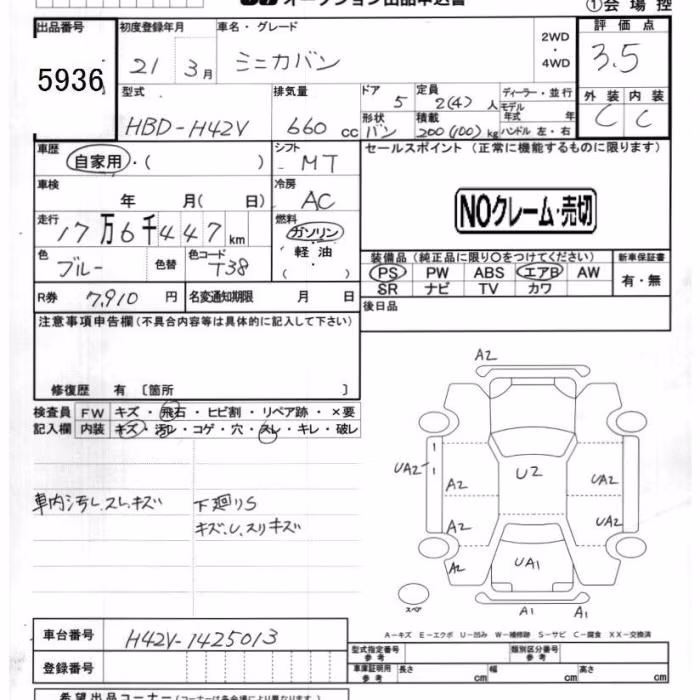 オークション出品申込書
①会場控
出品番号 初度登録年月 車名・グレード 2WD ・ 4WD 評価点
5936 21 3月 ミニカバン 3.5
型式 排気量 ドア 5 定員 2(4)人 ディーラー・並行 外装 内装
モデル年式 年
HBD-H42V 660cc 形状 バン 積載 200(100)kg ハンドル 左・右 C C
車歴 自家用・( ) シフト MT セールスポイント(正常に機能するものに限ります)
車検 年 月( 日) 冷房 AC
NOクレーム・売切
走行 17万6千447km 燃料 ガソリン
軽油
( )
色 ブルー 色替 色コード T38 装備品(純正品に限り○をつけてください) 新車保証書
PS PW ABS エアB AW 有・無
SR ナビ TV カワ
R券 7,910円 名変通知期限 月 日 後日品
注意事項申告欄(不具合内容等は具体的に記入して下さい)
修復歴 有〔箇所 〕
検査員 FW キズ・飛石・ヒビ割・リペア跡・×要
記入欄 内装 キズ・汚レ・コゲ・穴・スレ・キレ・破レ
車内汚レ.スレ.キズ 下廻りS
キズ、U、スリキズ
A2
UA2 A2 U2 UA2
A2 UA2
A2 UA1
スペア A1 A1
A-キズ E-エクボ U-凹み W-補修跡 S-サビ C-腐食 XX-交換済
車台番号 H42V-1425013
型式指定番号 参考 類別区分番号 参考
登録番号 車庫証明用 参考 長さ cm 幅 cm 高さ cm
希望出品コーナー(コーナーは会場により異なります。)